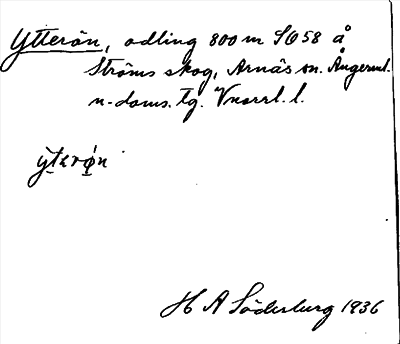 Ytterön, odling 800 m SO 58 å
Ströms skog, Arnäs sn. Ångerml.
n. doms. tg. Vnorrl. l.
ẏtərǿn
H A Söderburg 1936